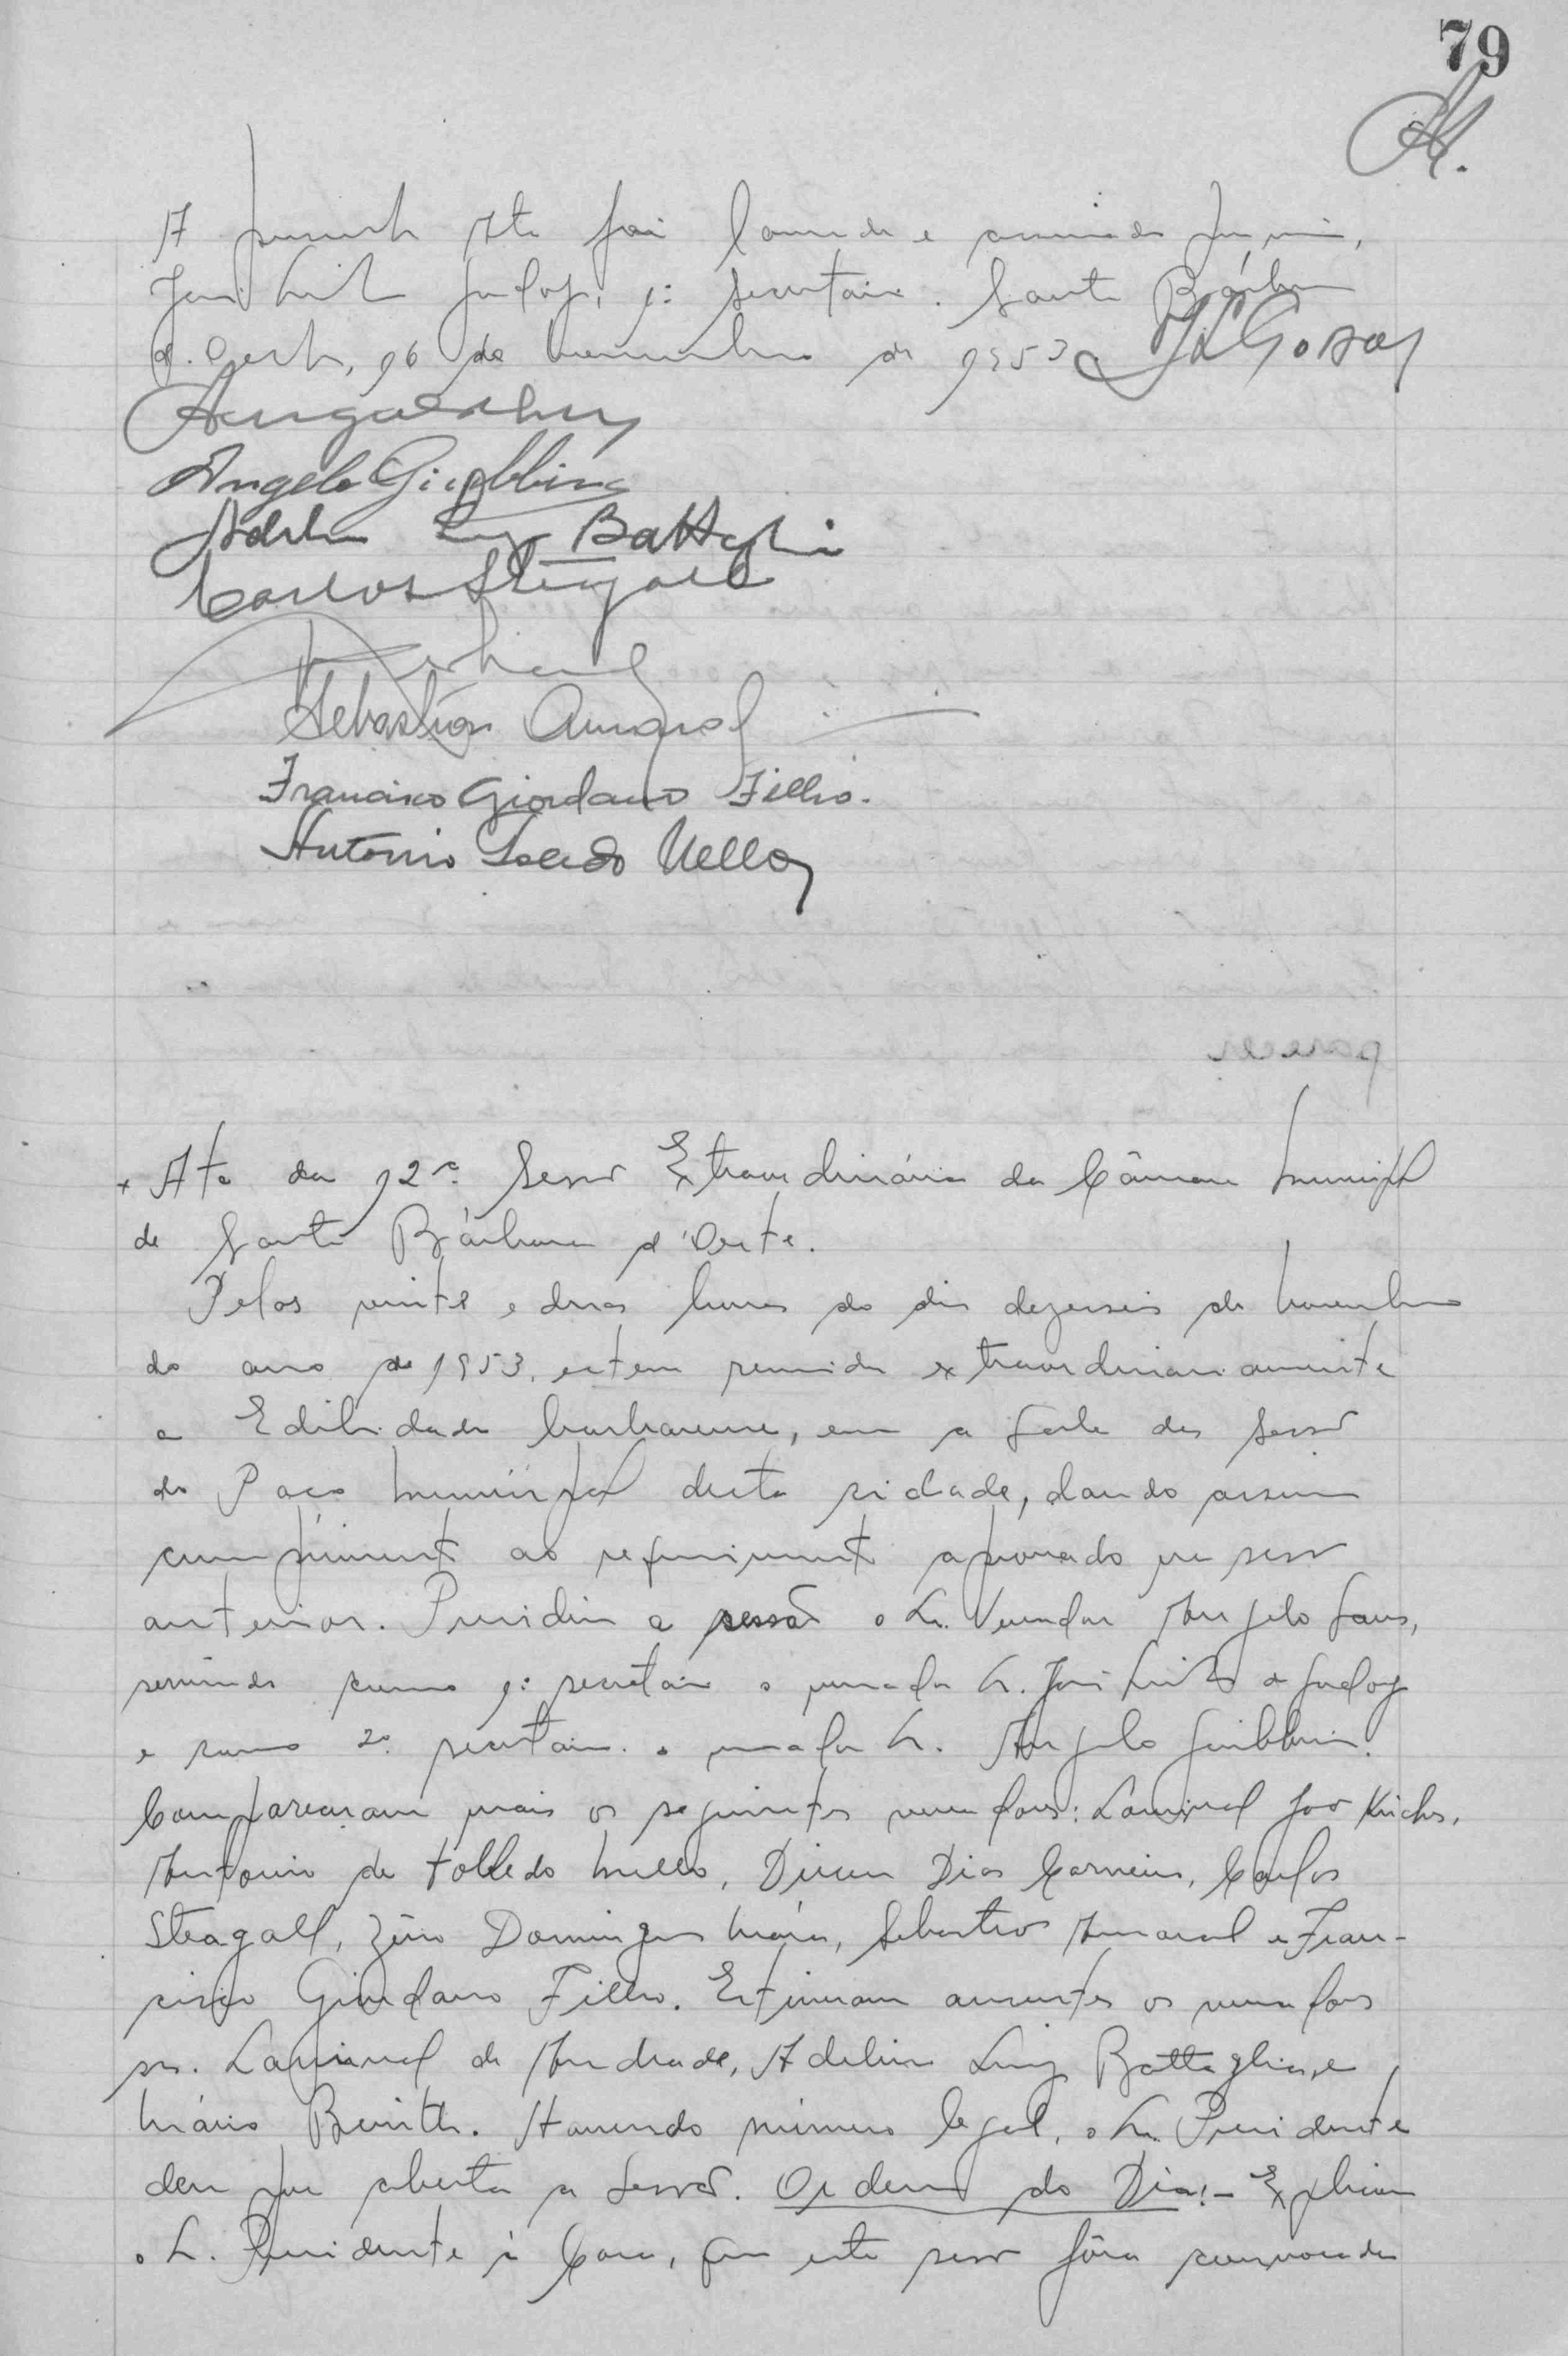 79
A presente Ata foi lavrada e assinada por mim,
José Luiz Godoy, 1º secretario. Santa Bárbara
d'Oeste, 16 de novembro de 1953
Angelo Giubbina
Adelino Luiz Battaglia
Carlos Steagall
Sebastião Amaral
Francisco Giordano Filho.
Antonio Toledo Mello
Ata da 12ª Sessão Extraordinária da Câmara Municipal
de Santa Bárbara d'Oeste.
Pelas vinte e duas horas do dia dezesseis de novembro
do ano de 1953, esteve reunida extraordinariamente
a Edilidade barbarense, em a sala das sessões
do Paço Municipal desta cidade, dando assim
cumprimento ao requerimento aprovado em sessão
anterior. Presidiu a sessão o Sr. Vereador Angelo Sans,
servindo como 1º secretario o vereador Sr. José Luiz de Godoy
e como 2º secretario o vereador Sr. Angelo Giubbina.
Compareceram mais os seguintes vereadores: Lourival João
Antonio de Tolledo Mello, Dirceu Dias Carneiro, Carlos
Steagall, Zéno Domingues Maia, Sebastião Amaral e Fran-
cisco Giordano Filho. Estiveram ausentes os vereadores
srs. Lourival de Andrade, Adelino Luiz Battaglia, e
Mário Havendo número legal, o Sr. Presidente
deu por aberta a sessão. Ordem do Dia:- Explicou
o Sr. Presidente à Casa, que esta sessão fôra convocada